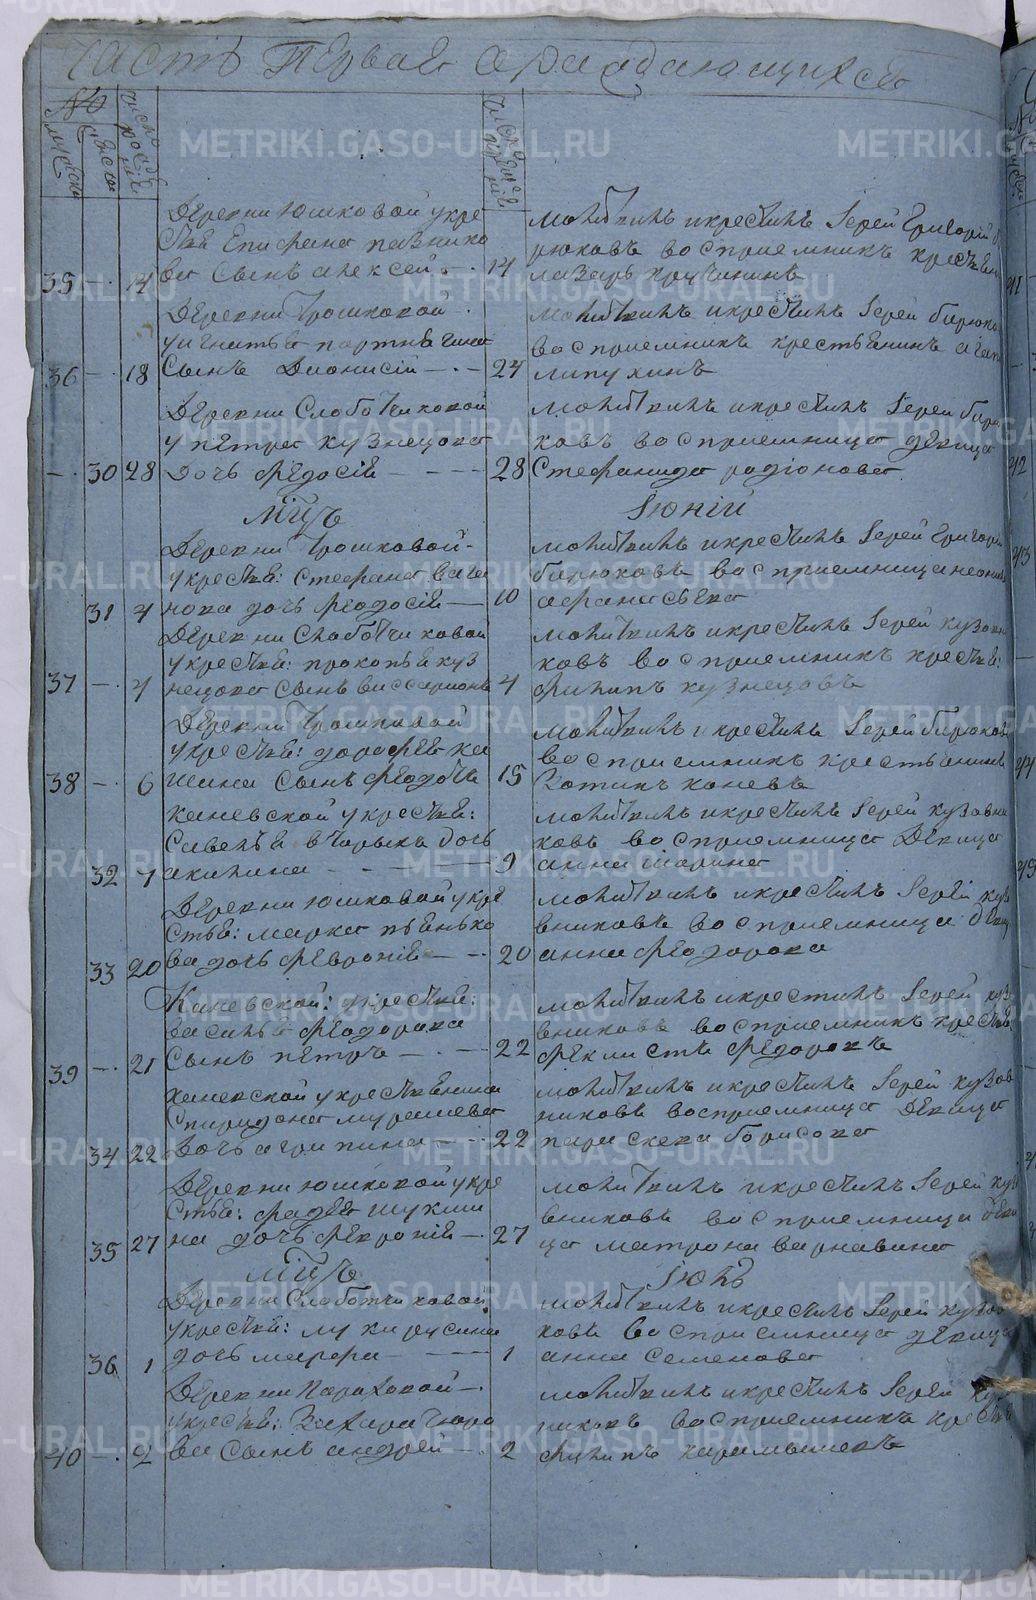 Часть первая о раждающихся
№
мужеска
женска
число рожденій
число крещеній
Деревни Юшковой у кре
стья: Епифана
ва сынъ алексей
35 — 14
14
молитвилъ и крестилъ Іерей Григорій
рюковъ восприемникъ
лазарь
Деревни Трошковой
у игнатья
36 — 18 сынъ Дионисій — 24
молитвилъ и крестилъ Іерей бирюко
восприемникъ крестьянинъ
липухинъ
Деревни Слободчиковой
у петра кузнецова
— 30 28 дочь федосія — 28
молитвилъ и крестилъ Іерей бирю
ковъ восприемница девица
Стефанида родіонова
мцъ Іюній
Деревни Трошковой
у крестья: стефана
31 4 дочь феодосія — 10
молитвилъ и крестилъ Іерей григорій
бирюковъ восприемница
афанасьева
Деревни Слободчиковой
у крестья: прокопья куз
37 — 4 нецова сынъ виссарионъ 4
молитвилъ и крестилъ Іерей кузовни
ковъ восприемникъ крестья:
филипъ кузнецовъ
Деревни Трошковой
у крестья: дорофея ка
38 — 6 шина сынъ 15
молитвилъ и крестилъ Іерей бирюковъ
восприемникъ крестьянинъ
Зотикъ коневъ
каневской у крестья:
Савелья вторыхъ дочь
32 7 акилина — 9
молитвилъ и крестилъ Іерей кузовни
ковъ восприемница Девица
анна шарина
Деревни юшковой у кре
стья: марка пенько
33 20 ва дочь февронія — 20
молитвилъ и крестилъ Іерей кузо
вниковъ восприемница деви
анна феодорова
Каневской: у крестья:
василья феодорова
39 — 21 сынъ петръ — 22
молитвилъ и крестилъ Іерей кузо
вниковъ восприемникъ крестья
феклистъ федоровъ
каневской у крестьянина
Спиридона мурашева
34 22 дочь агрипина — 22
молитвилъ и крестилъ Іерей кузов
никовъ восприемница Девица
параскева борисова
Деревни юшковой у кре
стья: фадея шукши
35 27 на дочь февронія — 27
молитвилъ и крестилъ Іерей кузо
вниковъ восприемница деви
ца матрона варнавина
мцъ Іюль
Деревни Слободчиковой
у крестья: луки русина
36 1 дочь марфа — 1
молитвилъ и крестилъ Іерей кузовни
ковъ восприемница девица
анна семенова
Деревни
у крестья: Захара
40 — 2 ва сынъ андрей — 2
молитвилъ и крестилъ Іерей кузов
никовъ восприемникъ крестья
филипъ карамышевъ
METRIKI.GASO-URAL.RU